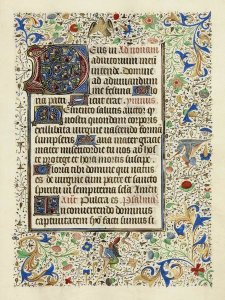 Deus in Ad nonam
adiutorium meū
intende Domine
ad adiuuandum
me festina Glo
ria patri Sicut erat. ymnus.
Memento salutis auctor q
nostri quondam corporis
ex illibata uirgine nascendo formā
sumpseris Maria mater gracie
mater misericordie tu nos ab hos
te protege et hora mortis suscipe
Gloria tibi domine qui natus
es de uirgine cum patre et sancto
spiritu in sempiterna secla Amen
Añ Pulcra es Psalmus
In conuertendo dominus
captiuitatem syon facti sumus si